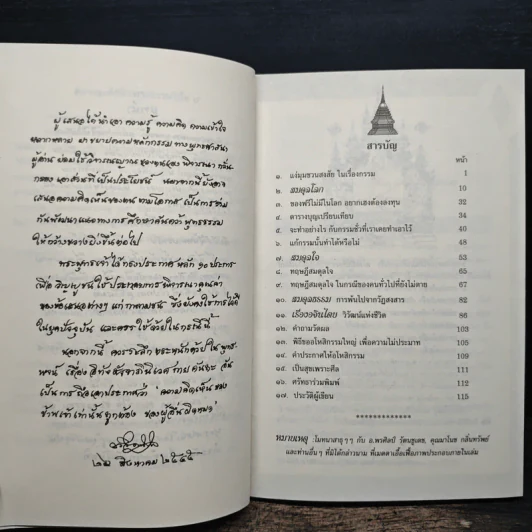 ผู้เสนอได้นำเอา ความรู้ ความคิด ความเข้าใจ
หลากหลาย มาขยายตามหลักกรรม ทางพุทธศาสนา
ผู้อ่าน ย่อมใช้วิจารณญาณ ของตนเอง พิจารณา กลั่น
กรอง เอาส่วนที่เป็นประโยชน์
เสนอความคิดเห็นของตน ตามโอกาส เป็นการร่วม
กันพัฒนาแนวทางการศึกษาค้นคว้า พุทธธรรม
ให้กว้างขวางยิ่งขึ้นต่อไป
พระพุทธเจ้าได้ทรงประกาศ หลัก ๑๐ ประการ
เพื่อ วิญญูชน ใช้ประกอบการพิจารณาคุณค่า
ของข้อเสนอต่างๆ แก่ กาลามชน ซึ่งยังคงใช้การได้
ในยุคปัจจุบัน และควรใช้ด้วยในกรณีนี้
นอกจากนี้ ควรระลึก ตระหนักด้วย ในพุทธ
พจน์ เรื่อง
เป็นการถือเอาประการว่า "ความคิดเห็นของ
ข้าพเจ้าเท่านั้นถูกต้อง ของผู้อื่นผิดหมด"
สิงหาคม ๒๕๔๕
สารบัญ
หน้า
๑. แง่มุมชวนสงสัย ในเรื่องกรรม 1
๒. สมดุลโลก 10
๓. ของฟรีไม่มีในโลก อยากเฮงต้องลงทุน 32
๔. ตารางบุญเปรียบเทียบ 34
๕. จะทำอย่างไร กับกรรมชั่วที่เราเคยทำเอาไว้ 40
๖. แก้กรรมนั้นทำได้หรือไม่ 48
๗. สมดุลใจ 53
๘. ทฤษฎีสมดุลใจ 65
๙. ทฤษฎีสมดุลใจ ในกรณีของคนทั่วไปที่ยังไม่ตาย 67
๑๐. สมดุลธรรม การพ้นไปจากวัฏสงสาร 82
๑๑. เรืองรองจันโดย วิวัฒน์แห่งชีวิต 86
๑๒. คำถามวัดผล 103
๑๓. พิธีขออโหสิกรรมใหญ่ เพื่อความไม่ประมาท 105
๑๔. คำประกาศให้อโหสิกรรม 109
๑๕. เป็นสุขเพราะศีล 111
๑๖. ศรัทธาร่วมพิมพ์ 112
๑๗. ประวัติผู้เขียน 115
*************
หมายเหตุ :โมทนาสาธุ ๆ ๆ กับ อ.พรศิลป์ รัตนชูเดช, คุณมาโนช กลิ่นทรัพย์
และท่านอื่น ๆ ที่มิได้กล่าวนาม ที่เมตตาเอื้อเฟื้อภาพประกอบภายในเล่ม